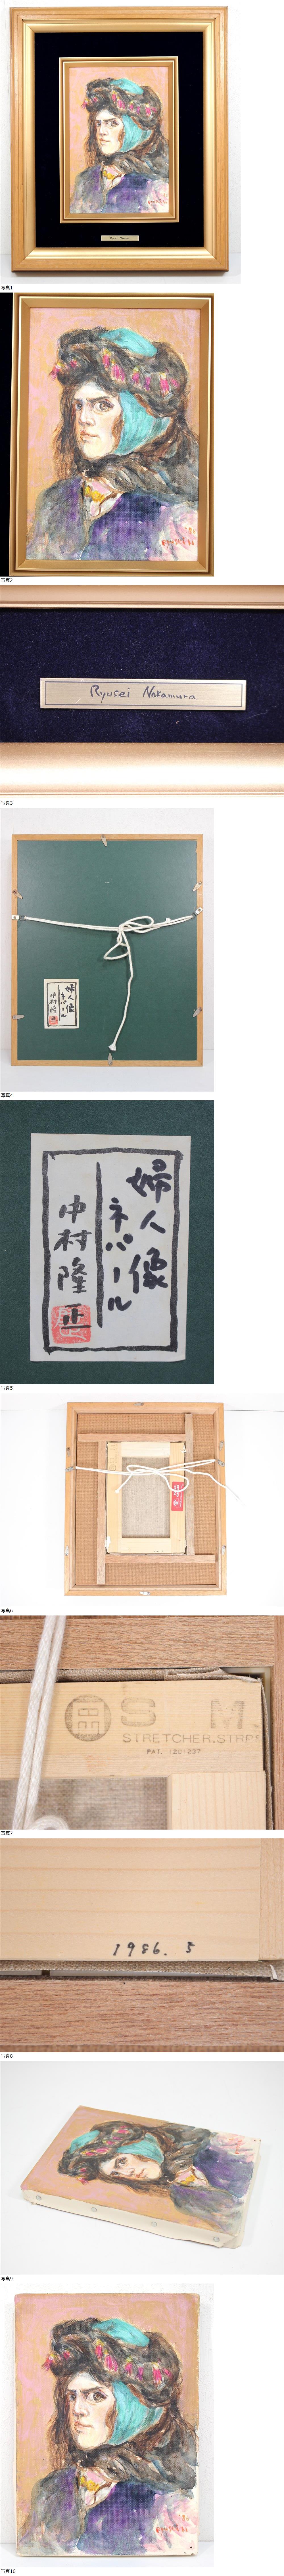 写真1
'86
RYUSEI
写真2
Ryusei Nakamura
写真3
婦人像
ネパール
中村隆正
写真4
婦人像
ネパール
中村隆
正
写真5
写真6
SM
STRETCHER.STRPS
PAT. 120-237
写真7
1986. 5
写真8
写真9
写真10